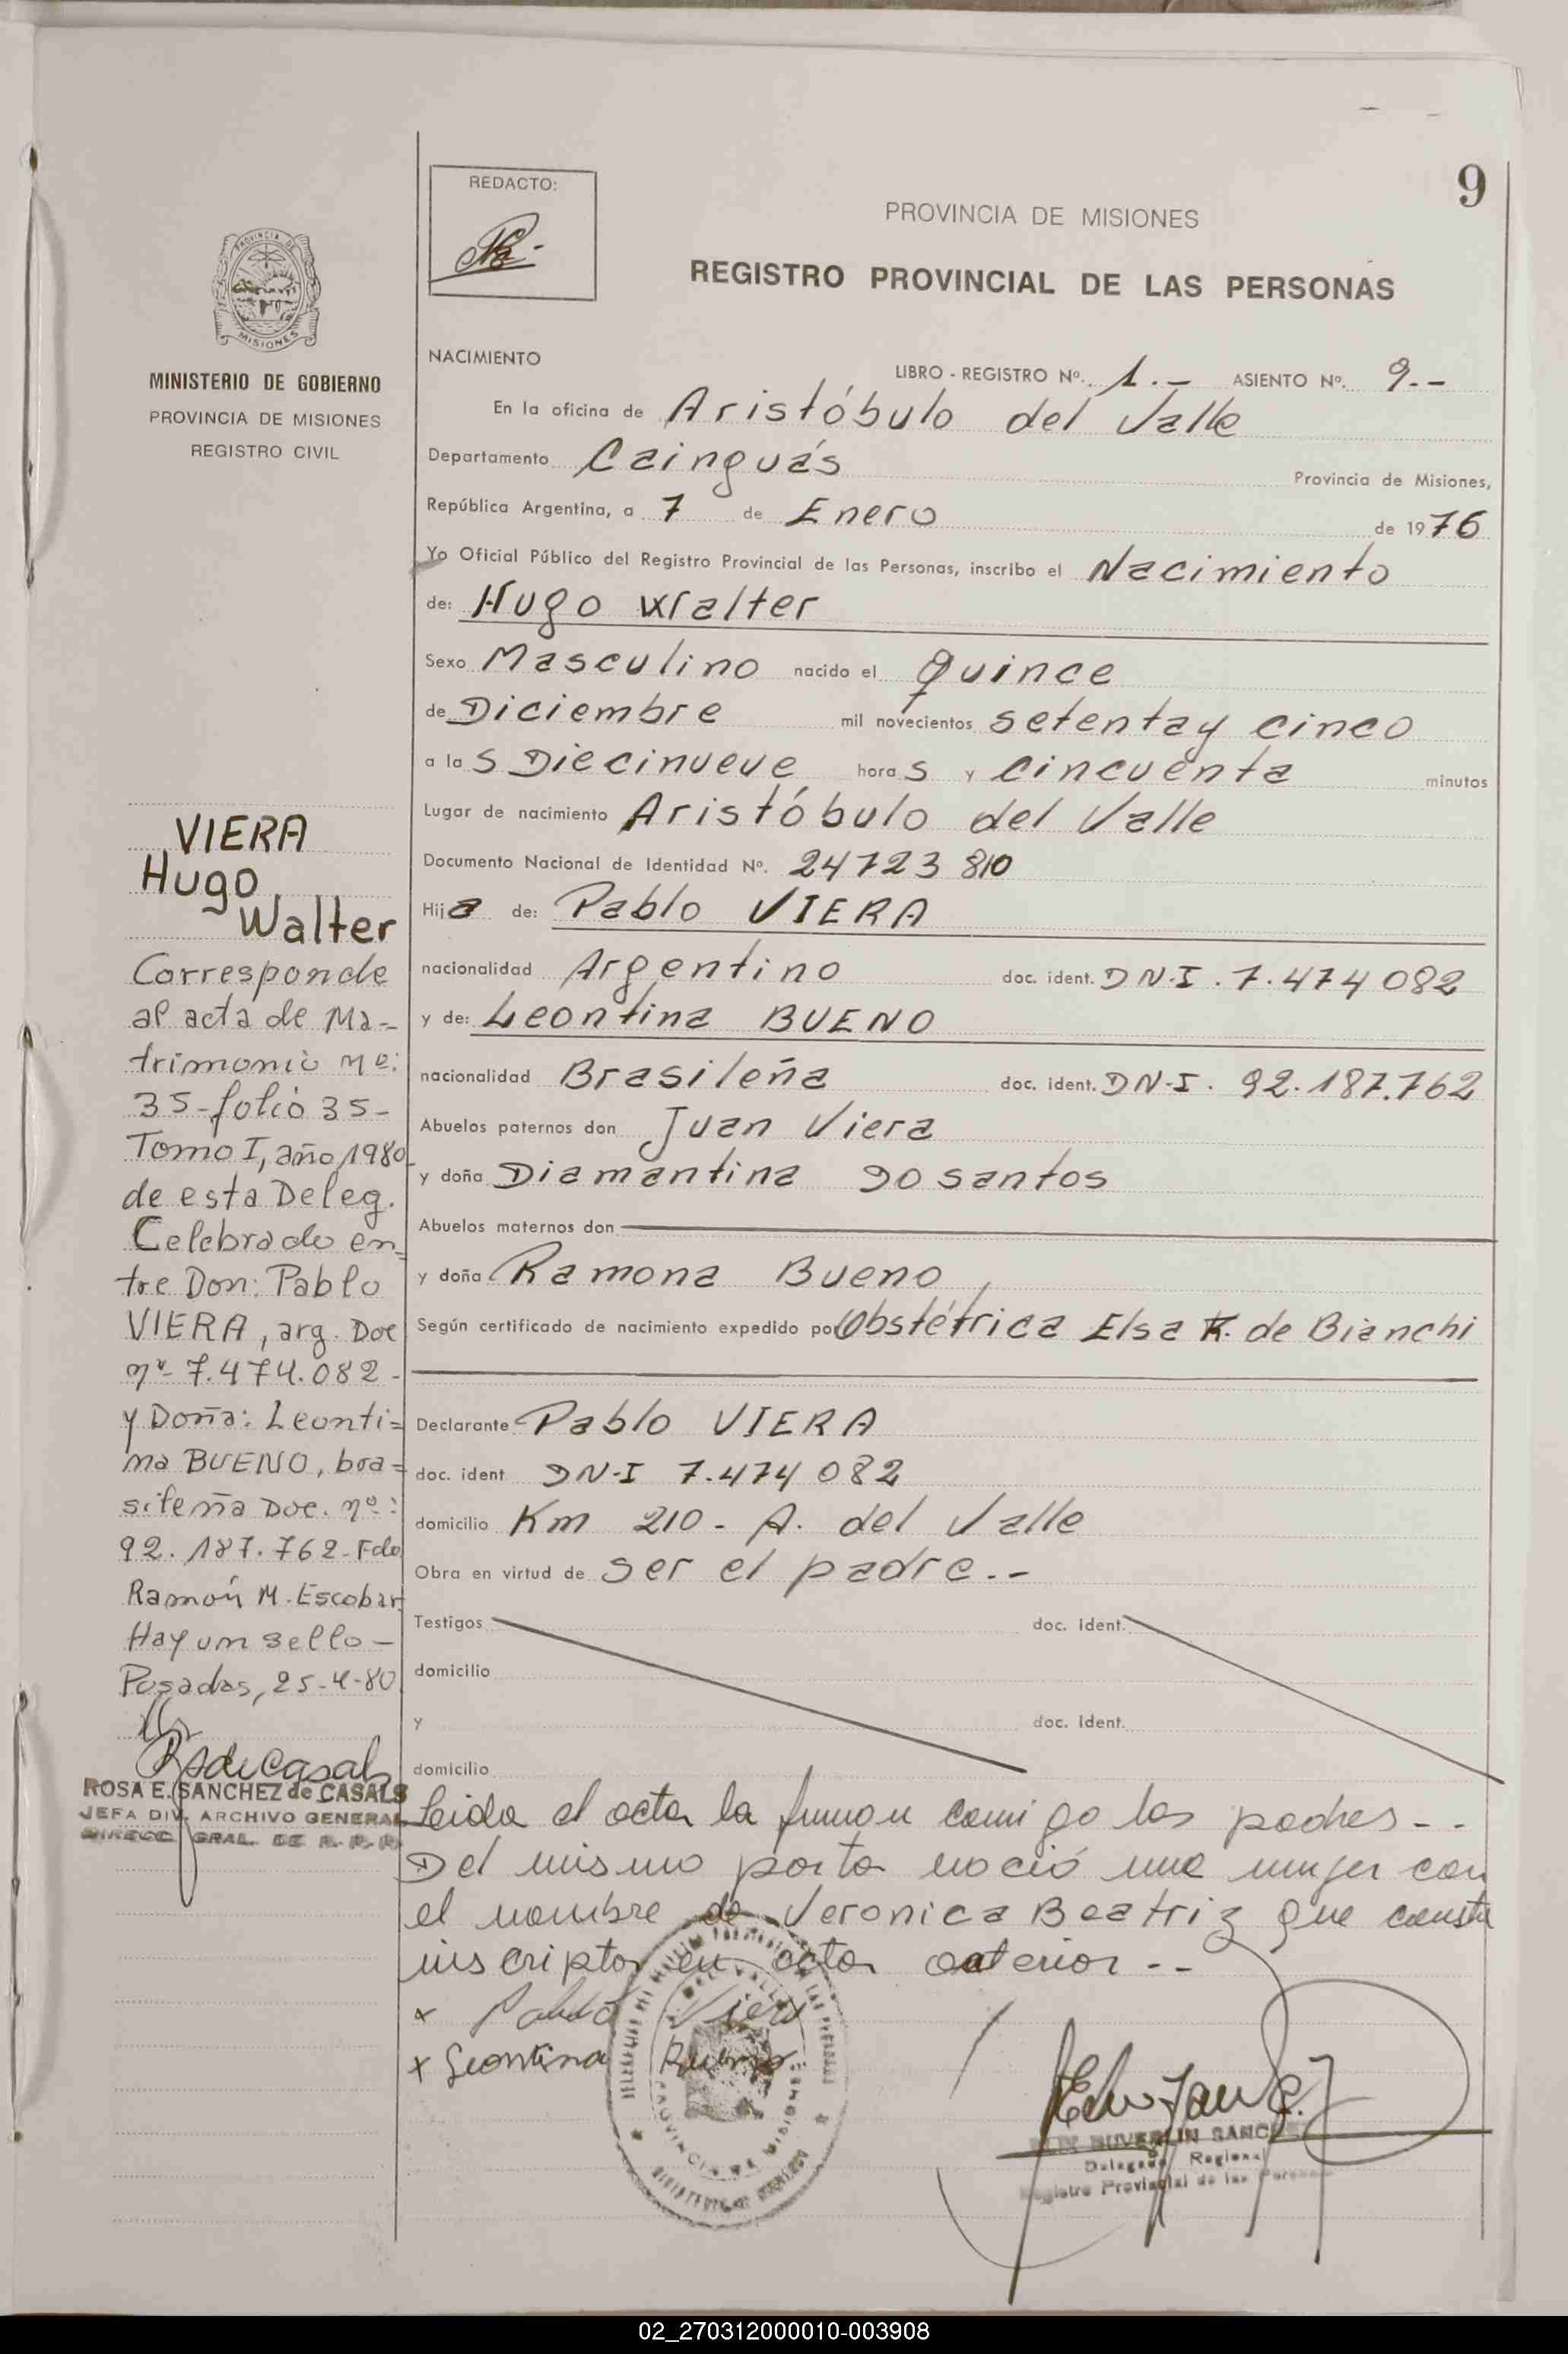 9
REDACTO:
PROVINCIA DE MISIONES
REGISTRO PROVINCIAL DE LAS PERSONAS
PROVINCIA DE
MISIONES
MINISTERIO DE GOBIERNO
PROVINCIA DE MISIONES
REGISTRO CIVIL
NACIMIENTO
LIBRO - REGISTRO Nº. 1.- ASIENTO Nº. 9.--
En la oficina de Aristóbulo del Valle
Departamento Cainguás Provincia de Misiones,
República Argentina, a 7 de Enero de 1976
Yo Oficial Público del Registro Provincial de las Personas, inscribo el Nacimiento
de: Hugo Walter
Sexo Masculino nacido el Quince
de Diciembre mil novecientos setenta y cinco
a las Diecinueve horas y cincuenta minutos
Lugar de nacimiento Aristóbulo del Valle
Documento Nacional de Identidad Nº. 24723810
Hija de: Pablo VIERA
nacionalidad Argentino doc. ident. DN.I. 7.474082
y de: Leontina BUENO
nacionalidad Brasileña doc. ident. DN-I. 92.187.762
Abuelos paternos don Juan Viera
y doña Diamantina Do santos
Abuelos maternos don
y doña Ramona Bueno
Según certificado de nacimiento expedido por Obstétrica Elsa K. de Bianchi
Declarante Pablo VIERA
doc. ident DN-I 7.474082
domicilio Km 210 - A. del Valle
Obra en virtud de ser el padre.--
Testigos doc. ident.
domicilio
y doc. ident.
domicilio
Leida el acta la firman comigo los padres - -
Del mismo parto nació una mujer con
el nombre de Veronica Beatriz que consta
inscripta en acta anterior --
x Pablo Viera
x Leontina Bueno
SANCHEZ
Delegado Regional
Registro Provincial de las Personas
VIERA
Hugo
Walter
Corresponde
al acta de Ma-
trimonio nº:
35-folio 35-
Tomo I, año 1980
de esta Deleg.
Celebrado en=
tre Don: Pablo
VIERA, arg. Doc
nº- 7.474.082-
y Doña: Leonti=
na BUENO, bra=
sileña Doc. nº:
92.187.762-Fdo
Ramón M. Escobar
Hay un sello-
Posadas, 25-4-80
ROSA E. SANCHEZ de CASALS
JEFA DIV. ARCHIVO GENERAL
DIRECC. GRAL. DE R. P. P.
02_270312000010-003908